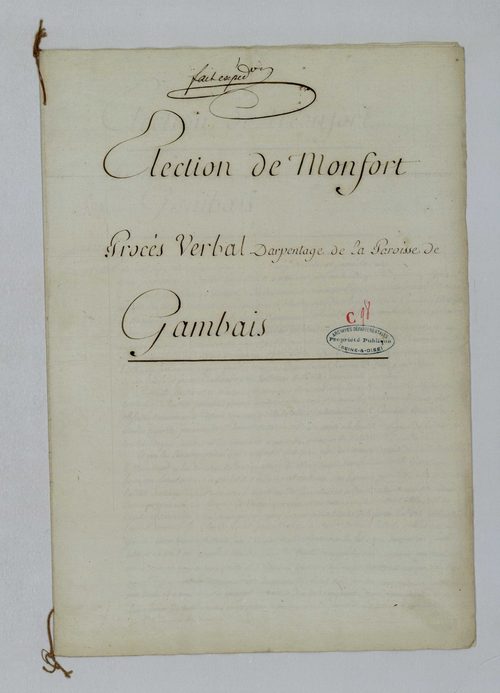 fait expédon
Election de Monfort
Procés Verbal Darpentage de la Paroisse de
Gambais
C 98
ARCHIVES DÉPARTEMENTALES
Propriété Publique
(SEINE-&-OISE)